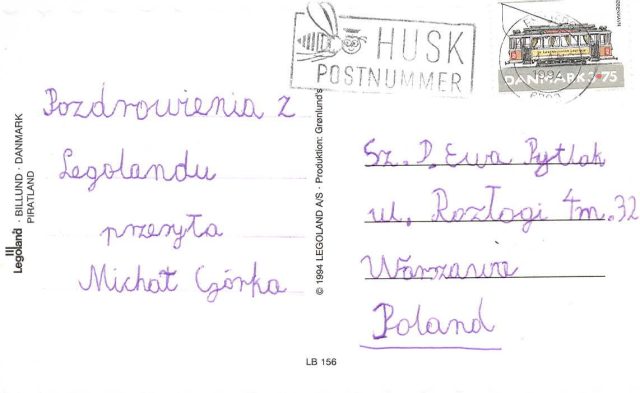 HUSK
POSTNUMMER
1994
DANMARK 3.75
Pozdrowienia z
Legolandu
przesyła
Michał Górka
Legoland · BILLUND · DANMARK
PIRATLAND
© 1994 LEGOLAND A/S · Produktion: Grønlund's
Sz. P. Ewa Pytlak
ul. Rozłogi 4m. 32
Warszawa
Poland
LB 156